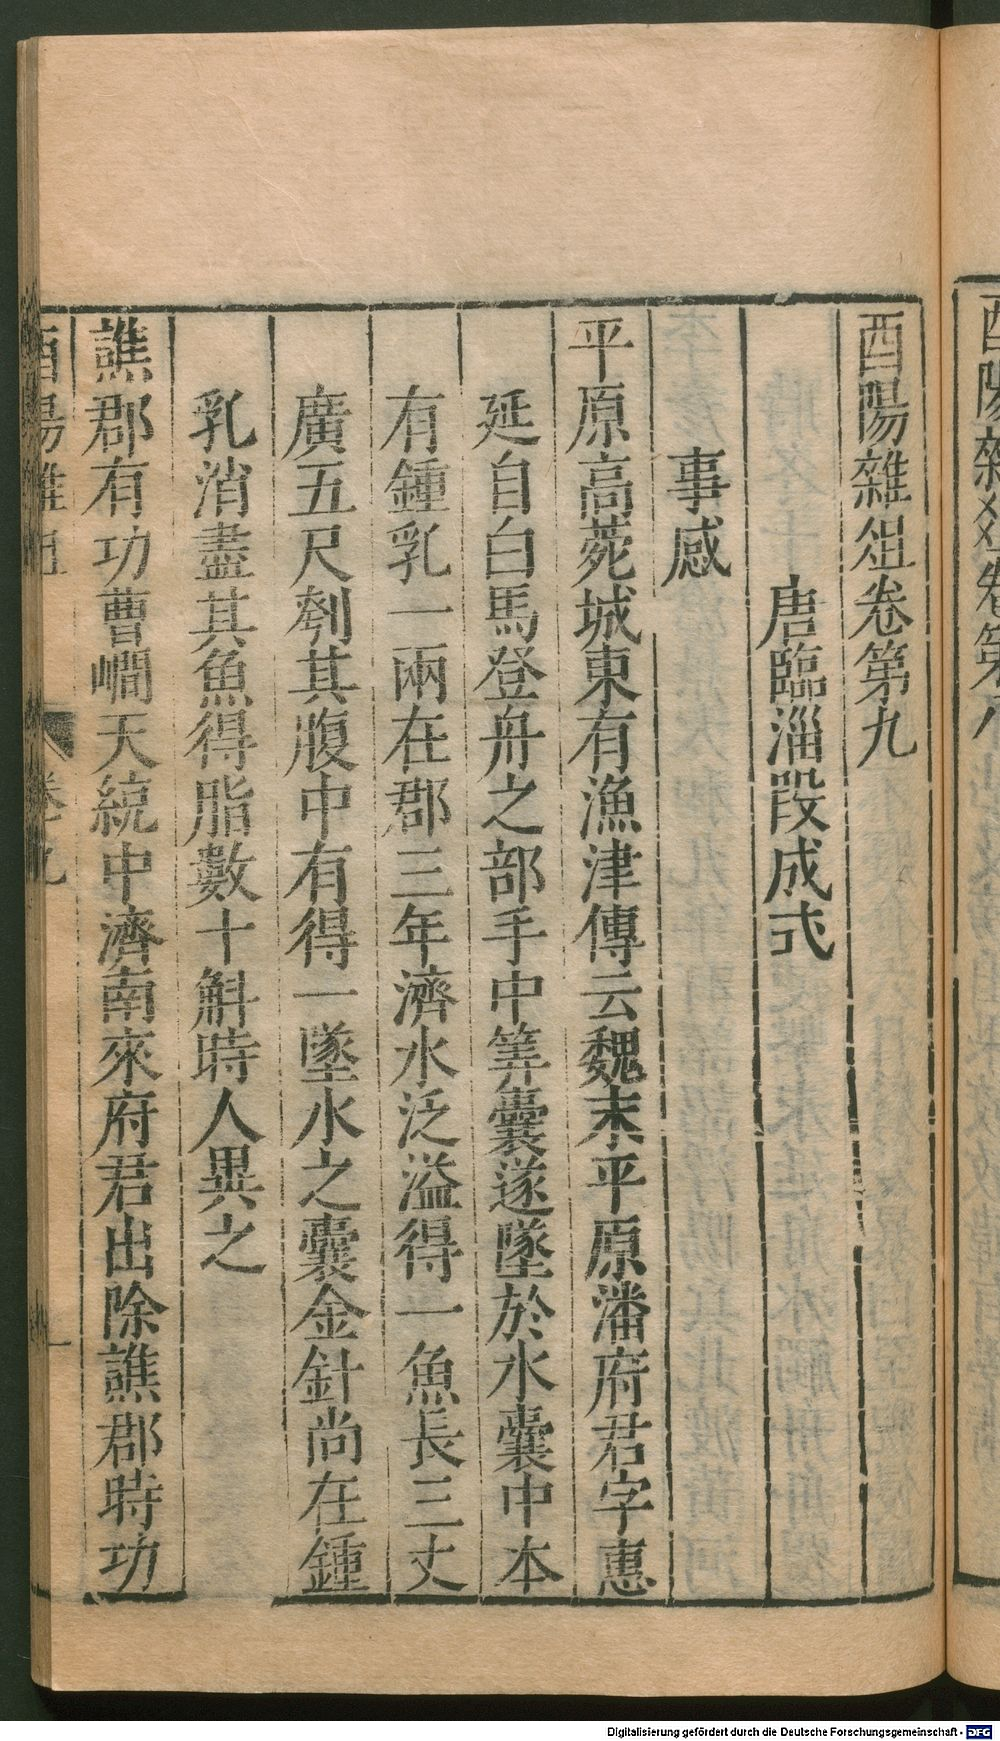 酉陽雜俎卷第九
唐臨淄段成式
事感
平原高菀城東有漁津傳云魏末平原潘府君字惠
延自白馬登舟之部手中筭囊遂墜於水囊中本
有鍾乳一兩在郡三年濟水泛溢得一魚長三丈
廣五尺刳其腹中有得一墜水之囊金針尚在鍾
乳消盡其魚得脂數十斛時人異之
譙郡有功曹㵎天統中濟南來府君出除譙郡時功
酉陽雜俎 卷九 一
Digitalisierung gefördert durch die Deutsche Forschungsgemeinschaft - DFG